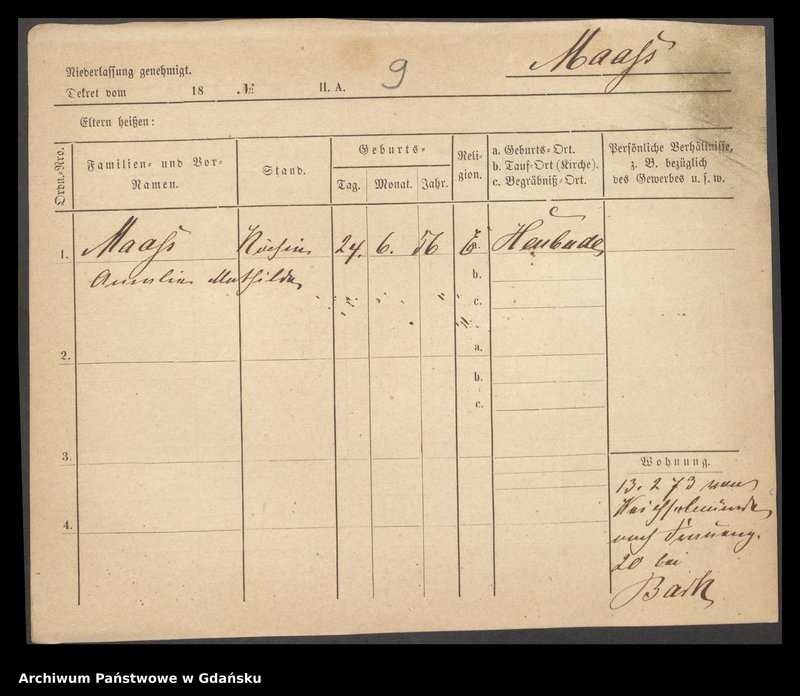 Maaß
Niederlassung genehmigt.
Dekret vom 18 № II. A. 9
Eltern heißen:
Ordn.-Nro.
Familien- und Vor-
Namen.
Stand.
Geburts-
Tag. Monat. Jahr.
Reli-
gion.
a. Geburts-Ort.
b. Tauf-Ort (Kirche).
c. Begräbniß-Ort.
Persönliche Verhältnisse,
z. B. bezüglich
des Gewerbes u. s. w.
1. Maaß Köchin 24. 6. 56 E a. Heubude
Amalie Mathilde
b.
c.
2. a.
b.
c.
3.
4.
Wohnung.
13. 2 73 von
Weichselmünde
nach
20 bei
Bark
Archiwum Państwowe w Gdańsku